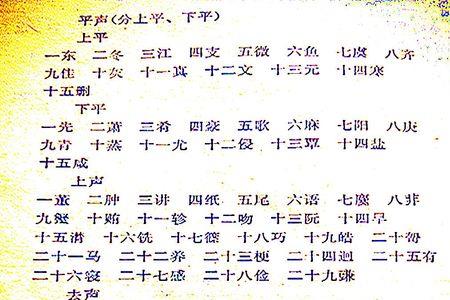 平声(分上平、下平)
上平
一东 二冬 三江 四支 五微 六鱼 七虞 八齐
九佳 十灰 十一真 十二文 十三元 十四寒
十五删
下平
一先 二萧 三肴 四豪 五歌 六麻 七阳 八庚
九青 十蒸 十一尤 十二侵 十三覃 十四盐
十五咸
上声
一董 二肿 三讲 四纸 五尾 六语 七麌 八荠
九蟹 十贿 十一轸 十二吻 十三阮 十四旱
十五潸 十六铣 十七篠 十八巧 十九皓 二十哿
二十一马 二十二养 二十三梗 二十四迥 二十五有
二十六寝 二十七感 二十八俭 二十九豏
去声